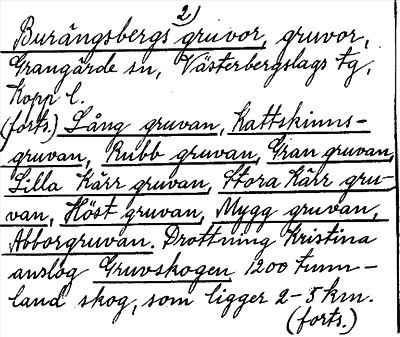 2)
Burängsbergs gruvor, gruvor,
Grangärde sn, Västerbergslags tg,
Kopp. l.
(forts.) Lång gruvan, Kattskinns-
gruvan, Rubb gruvan, Gran gruvan,
Lilla Kärr gruvan, Stora Kärr gru-
van, Höst gruvan, Mygg gruvan,
Abborgruvan. Drottning Kristina
anslog Gruvskogen 1200 tunn-
land skog, som ligger 2-5 km.
(forts.)